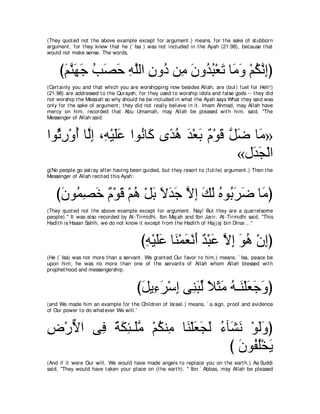 (They quoted not the above example except for argument.) means, for the sake of stubborn
argument, for they knew that he (`Isa ) was not included in the Ayah (21:98), because that
would not make sense. The words,
(إِنَّكُمْ وَمَا تَعْبُدُونَ مِن دُونِ اللَّهِ حَصَبُ جَهَنَّمَ)
(Certainly you and that which you are worshipping now besides Allah, are (but) fuel for Hell!)
(21:98) are addressed to the Quraysh, for they used to worship idols and false gods -- they did
not worship the Messiah so why should he be included in what the Ayah says What they said was
only for the sake of argument; they did not really believe in it. Imam Ahmad, may Allah have
mercy on him, recorded that Abu Umamah, may Allah be pleased with him, said, "The
Messenger of Allah said:
«مَا ضَلَّ قَوْمٌ بَعْدَ هُدًى كَانُوا عَلَيْهِ، إِلَّا أُورِثُوا
الْجَدَل»
g(No people go astray after having been guided, but they resort to (futile) argument.) Then the
Messenger of Allah recited this Ayah:
(مَا ضَرَبُوهُ لَكَ إِلاَّ جَدَلاَ بَلْ هُمْ قَوْمٌ خَصِمُونَ)
(They quoted not the above example except for argument. Nay! But they are a quarrelsome
people)." It was also recorded by At-Tirmidhi, Ibn Majah and Ibn Jarir. At-Tirmidhi said, "This
Hadith is Hasan Sahih, we do not know it except from the Hadith of Hajjaj bin Dinar..."
(إِنْ هُوَ إِلاَّ عَبْدٌ أَنْعَمْنَا عَلَيْهِ)
(He (`Isa) was not more than a servant. We granted Our favor to him,) means, `Isa, peace be
upon him; he was no more than one of the servants of Allah whom Allah blessed with
prophethood and messengership.
(وَجَعَلْنَـهُ مَثَلاً لِّبَنِى إِسْرَءِيلَ)
(and We made him an example for the Children of Israel.) means, `a sign, proof and evidence
of Our power to do whatever We will.'
(وَلَوْ نَشَآءُ لَجَعَلْنَا مِنكُمْ مَّلَـئِكَةً فِى الاٌّرْضِ
يَخْلُفُونَ )
(And if it were Our will, We would have made angels to replace you on the earth.) As-Suddi
said, "They would have taken your place (on the earth). " Ibn `Abbas, may Allah be pleased